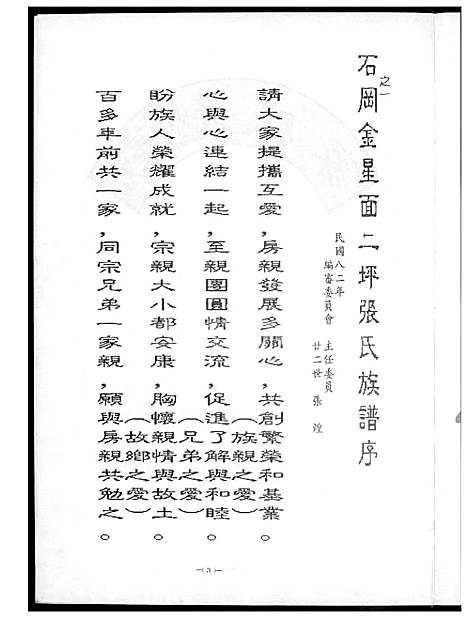 石岡金星面二坪張氏族譜序
之一
民國八二年
編審委員會 主任委員
廿二世 張 煌
請大家提攜互愛,房親發展多關心,共創繁榮和基業。
(族親之愛)
心與心連結一起,至親團圓情交流,促進了解與和睦。
(兄弟之愛)
盼族人榮耀成就,宗親大小都安康,胸懷親情與故土。
(故鄉之愛)
百多年前共一家,同宗兄弟一家親,願與房親共勉之。
—(3)—